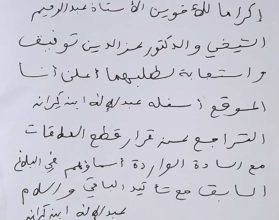 إكراما للأخوين الأستاذ عبد الرحيم
الشيخي والدكتور عز الدين توفيق
واستجابة لطلبهما أعلن أنا
الموقع أسفله عبد الإله ابن كيران
التراجع عن قرار قطع العلاقات
مع السادة الواردة أسماؤهم في البلاغ
السابق مع تأكيد الباقي والسلام
عبد الإله ابن كيران